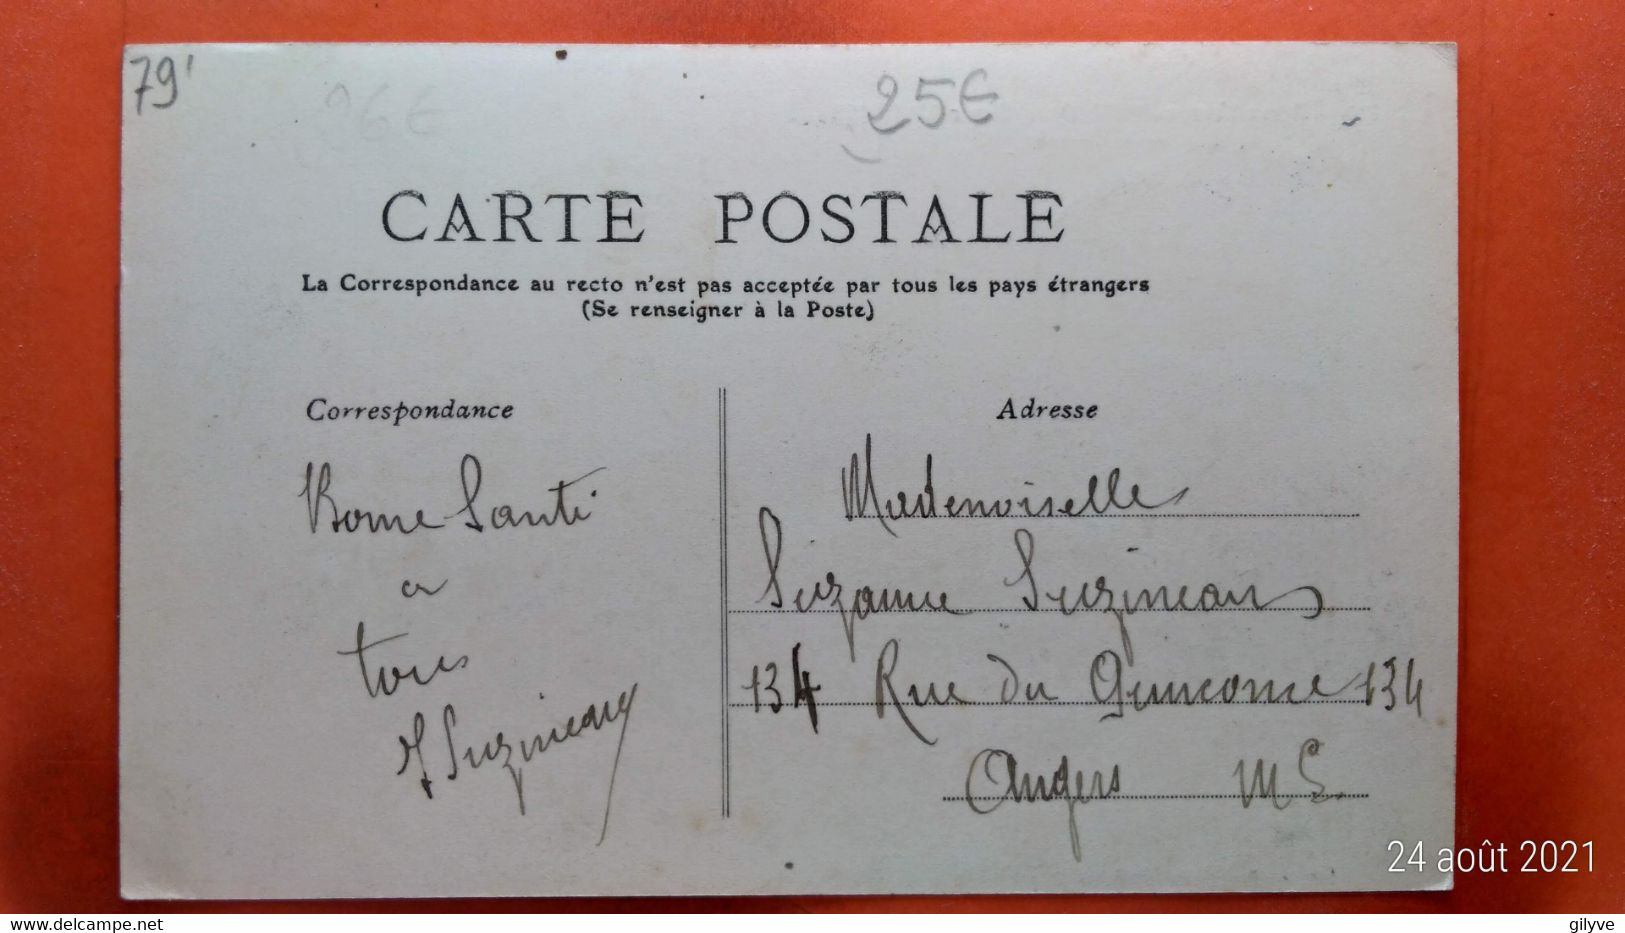 79'
25€
CARTE POSTALE
La Correspondance au recto n'est pas acceptée par tous les pays étrangers
(Se renseigner à la Poste)
Correspondance
Bonne Santé
a
tous
Suzineau
Adresse
Mademoiselle
Suzanne Suzineau
134 Rue du Quinconce 134
Angers M L
24 août 2021
www.delcampe.net
gilyve